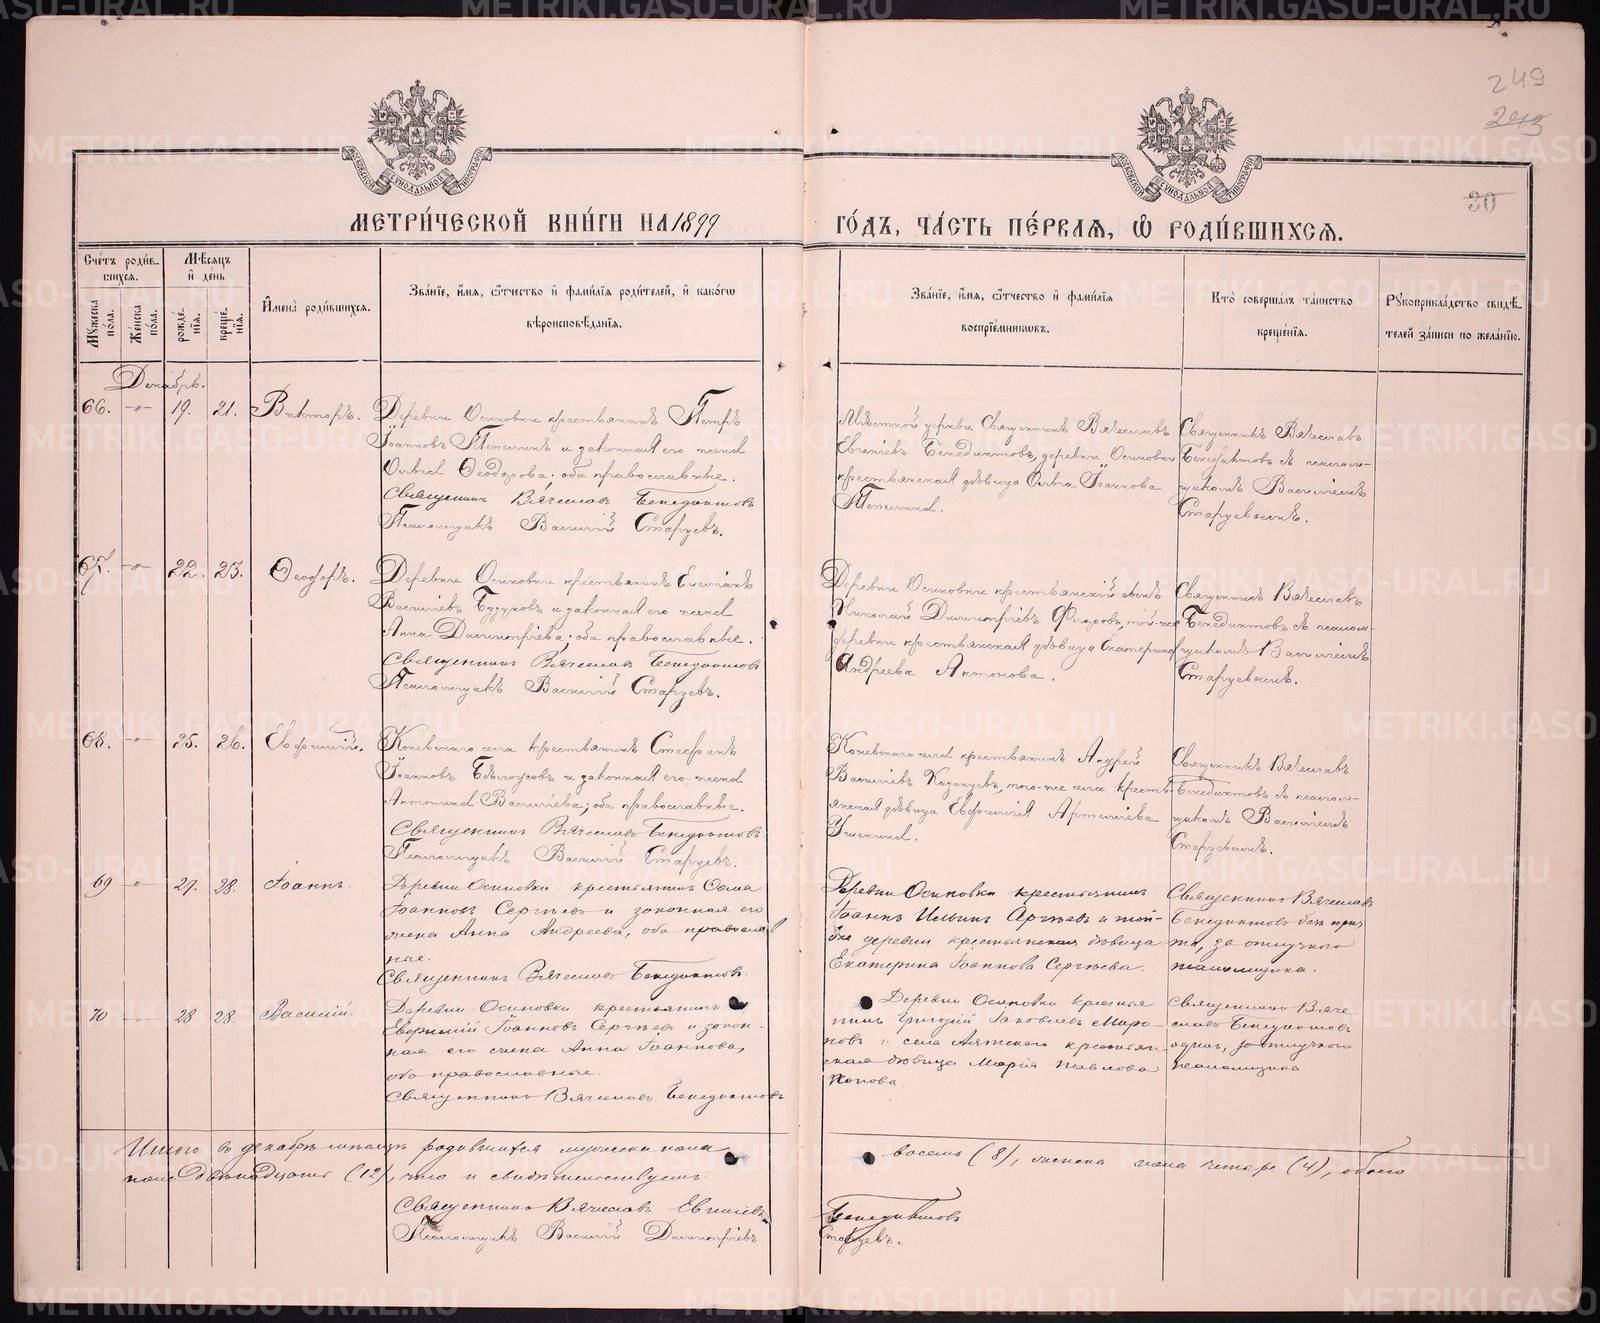 METRIKI.GASO-URAL.RU
249
30
МОСКОВСКОЙ СѴНОДАЛЬНОЙ ТИПОГРАФІИ
МОСКОВСКОЙ СѴНОДАЛЬНОЙ ТИПОГРАФІИ
МЕТРИ́ЧЕСКОЙ КНИ́ГИ НА 1899
ГО́ДЪ, ЧА́СТЬ ПЕ́РВАѦ, Ѽ РОДИ́ВШИХСѦ.
Сче́тъ роди́вшихсѧ.
Мꙋжеска пола.
Же́нска пола.
Мѣ́сѧцъ и҆ де́нь
рожде́нїѧ.
креще́нїѧ.
И҆мена̀ роди́вшихсѧ.
Зва́нїе, и҆́мѧ, ѻ҆́тчество и҆ фами́лїѧ роди́телей, и҆ како́гѡ
вѣроисповѣ́данїѧ.
Зва́нїе, и҆́мѧ, ѻ҆́тчество и҆ фами́лїѧ
воспрїе́мниковъ.
Кто̀ соверша́лъ та́инство
креще́нїѧ.
Рꙋкоприкла́дство свидѣ́телей за́писи по жела́нїю.
Декабрь.
66. -"- 19. 21. Викторъ.
Деревни Осиновки крестьянинъ Петръ
Іоанновъ Тепеминъ и законная его жена
Ольга Ѳеодорова; оба православные.
Священникъ Вячеславъ Бенедиктовъ
Псаломщикъ Василій Старцевъ.
Мѣстной церкви Священникъ Вячеславъ
Евгеніевъ Бенедиктовъ, деревни Осиновки
крестьянская дѣвица Ольга Іоаннова
Священникъ Вячеславъ
Бенедиктовъ съ псалом-
щикомъ Василіемъ
Старцевымъ.
67. -"- 22. 23. Ѳеодоръ.
Деревни Осиновки крестьянинъ
Васильевъ и законная его жена
Анна Димитріева; оба православные.
Священникъ Вячеславъ Бенедиктовъ
Псаломщикъ Василій Старцевъ.
Деревни Осиновки крестьянскій сынъ
Николай Димитріевъ Флоровъ, той-же
деревни крестьянская дѣвица Екатерина
Андреева Антонова.
Священникъ Вячеславъ
Бенедиктовъ съ псалом-
щикомъ Василіемъ
Старцевымъ.
68. -"- 25. 26.
Коневскаго села крестьянинъ Стефанъ
Іоанновъ Бѣлоусовъ и законная его жена
Антонина Васильева; оба православные.
Священникъ Вячеславъ Бенедиктовъ
Псаломщикъ Василій Старцевъ.
Коневскаго села крестьянинъ Андрей
Васильевъ Казанцевъ, того-же села кресть-
янская дѣвица Артеміева
Священникъ Вячеславъ
Бенедиктовъ съ псалом-
щикомъ Василіемъ
Старцевымъ.
69 -"- 27. 28. Іоаннъ.
Деревни Осиновки крестьянинъ Ѳома
Іоанновъ Сергѣевъ и законная его
жена Анна Андреева, оба православ-
ные.
Священникъ Вячеславъ Бенедиктовъ.
Деревни Осиновки крестьянинъ
Іоаннъ Ильинъ и той-
же деревни крестьянская дѣвица
Екатерина Іоаннова Сергѣева.
Священникъ Вячеславъ
Бенедиктовъ безъ
за отлучкою
псаломщика.
70 -"- 28 28. Василій.
Деревни Осиновки крестьянинъ
Іоанновъ Сергѣевъ и закон-
ная его жена Анна Іоаннова,
оба православные.
Священникъ Вячеславъ Бенедиктовъ
Деревни Осиновки крестья
нинъ Григорій Іаковлевъ Миро-
новъ и села Аятскаго крестьян-
ская дѣвица Марія Павлова
Попова
Священникъ Вяче-
славъ Бенедиктовъ
одинъ, за отлучкою
псаломщика
Итого въ декабрѣ мѣсяцѣ родившихся мужеска пола
восемь (8), женска пола четыре (4), обоего
пола двѣнадцать (12), что и свидѣтельствуемъ.
Священникъ Вячеславъ Евгеніевъ
Бенедиктовъ.
Псаломщикъ Василій Димитріевъ
Старцевъ.